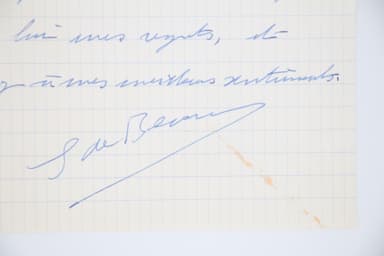 mes regrets, et
à mes meilleurs sentiments.
S de Beauvoir